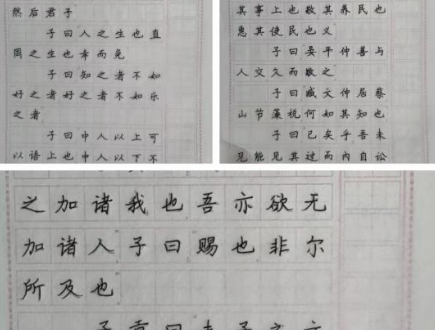 然后君子
子曰人之生也直
罔之生也幸而免
子曰知之者不如
好之者好之者不如乐
之者
子曰中人以上可
以语上也中人以下不
其事上也敬其养民也
惠其使民也义
子曰晏平仲善与
人交久而敬之
子曰臧文仲居蔡
山节藻梲何如其知也
子曰已矣乎吾未
见能见其过而内自讼
之加诸我也吾亦欲无
加诸人子曰赐也非尔
所及也